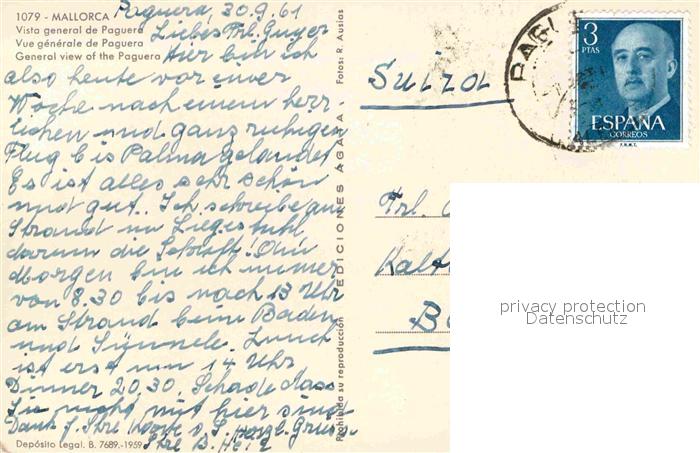 1079 - MALLORCA
Vista general de Paguera
Vue générale de Paguera
General view of the Paguera
Paguera, 30.9.61
Liebes Frl. Guyer
Hier bin ich
also heute vor einer
Woche nach einem herr-
lichen und ganz ruhigen
Flug bis Palma gelandet
Es ist alles sehr schön
und gut. Ich schreibe am
Strand im Liegestuhl
darum die Schrift!
bin ich immer
von 8.30 bis nach 13 Uhr
am Strand beim Baden
und Sünnele. Lunch
ist erst um 14 Uhr
Dinner 20,30. Schade dass
Sie nicht mit hier sind
Dank f. Ihre Karte u. Herzl. Grüsse
Ihre B.
Depósito Legal. B. 7689.-1959
Fotos: R. Ausias
EDICIONES AGATA
Prohibida su reproducción
Suiza
3
PTAS
ESPAÑA
CORREOS
F.N.M.T.
Frl.
privacy protection
Datenschutz